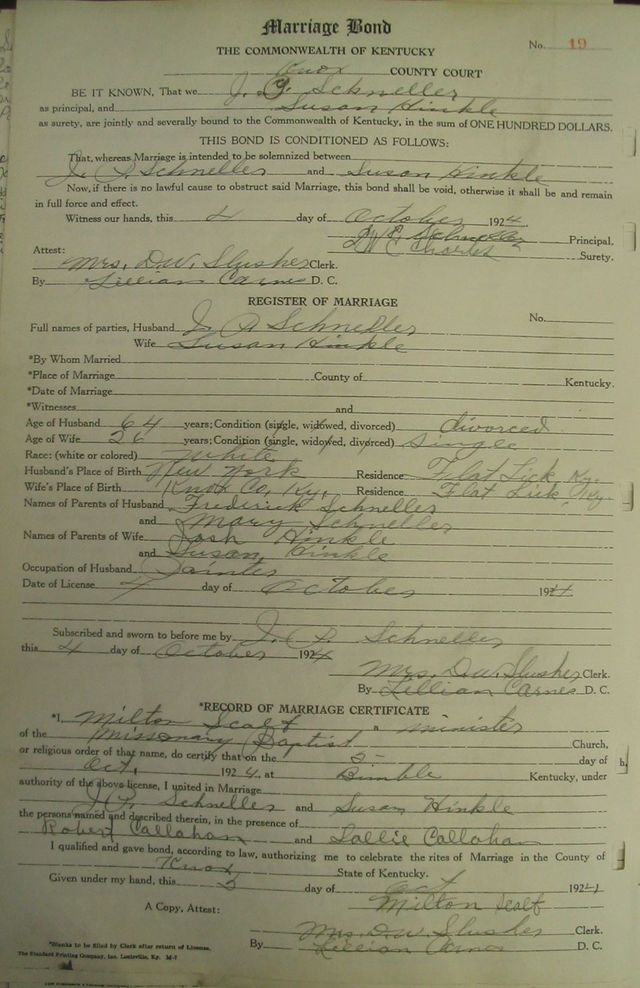 Marriage Bond
No. 19
THE COMMONWEALTH OF KENTUCKY
Knox COUNTY COURT
BE IT KNOWN, That we J. Schneller
as principal, and Susan Hinkle
as surety, are jointly and severally bound to the Commonwealth of Kentucky, in the sum of ONE HUNDRED DOLLARS.
THIS BOND IS CONDITIONED AS FOLLOWS:
That, whereas Marriage is intended to be solemnized between
J. Schneller and Susan Hinkle
Now, if there is no lawful cause to obstruct said Marriage, this bond shall be void, otherwise it shall be and remain
in full force and effect.
Witness our hands, this 4 day of October 1924.
Schneller Principal,
Charles Surety.
Attest:
Mrs. D.W. Slusher Clerk.
By Lillian Carnes D. C.
REGISTER OF MARRIAGE
No.
Full names of parties, Husband J. Schneller
Wife Susan Hinkle
*By Whom Married
*Place of Marriage County of Kentucky.
*Date of Marriage
*Witnesses and
Age of Husband 64 years; Condition (single, widowed, divorced) divorced
Age of Wife 26 years; Condition (single, widowed, divorced) Single
Race: (white or colored) White
Husband's Place of Birth New York Residence Flat Lick Ky.
Wife's Place of Birth Knox Co. Ky. Residence Flat Lick Ky
Names of Parents of Husband Frederick Schneller
and Mary Schneller
Names of Parents of Wife Josh Hinkle
and Susan Hinkle
Occupation of Husband Painter
Date of License 4 day of October 1924
Subscribed and sworn to before me by J. Schneller
this 4 day of October 1924
Mrs. D.W. Slusher Clerk.
By Lillian Carnes D. C.
*RECORD OF MARRIAGE CERTIFICATE
*I, Milton Scalf a minister
of the Missionary Baptist Church,
or religious order of that name, do certify that on the 5 day of
Oct. 1924, at Bimble Kentucky, under
authority of the above license, I united in Marriage
J. Schneller and Susan Hinkle
the persons named and described therein, in the presence of
Robert Callahan and Lallie Callahan
I qualified and gave bond, according to law, authorizing me to celebrate the rites of Marriage in the County of
Knox State of Kentucky.
Given under my hand, this 5 day of Oct 1924
Milton Scalf
A Copy, Attest:
Mrs. D.W. Slusher Clerk.
By Lillian Carnes D. C.
*Blanks to be filed by Clerk after return of License.
The Standard Printing Company, Inc. Louisville, Ky. M-7